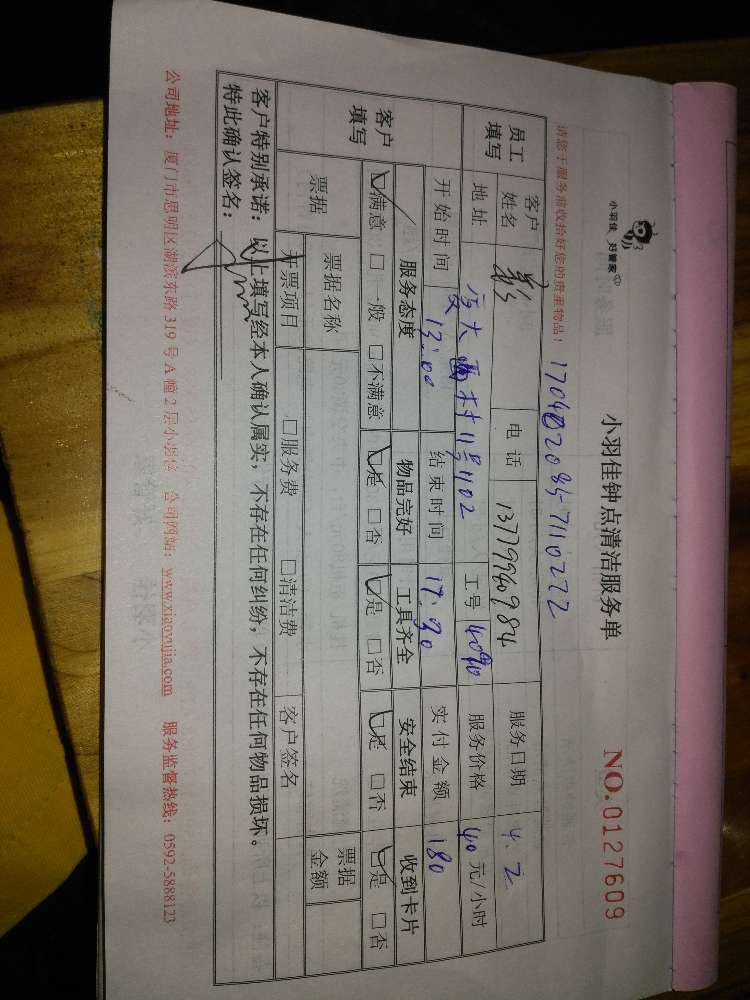 小羽佳 好管家
小羽佳钟点清洁服务单
NO.0127609
请您于服务前收拾好您的贵重物品！
员工填写 客户姓名 电话 13779940984 服务日期 4.2
地址 11号1102 工号 服务价格 40 元/小时
开始时间 13:00 结束时间 实付金额 180
客户填写 服务态度 物品完好 工具齐全 安全结束 收到卡片
☑满意 □一般 □不满意 ☑是 □否 ☑是 □否 ☑是 □否 ☑是 □否
票据 票据名称 票据金额
开票项目 □服务费 □清洁费 客户签名
客户特别承诺：以上填写经本人确认属实，不存在任何纠纷，不存在任何物品损坏。
特此确认签名：
公司地址：厦门市思明区湖滨东路 319 号 A 幢 2 层小羽佳 公司网站：www.xiaoyujia.com 服务监督热线：0592-5888123